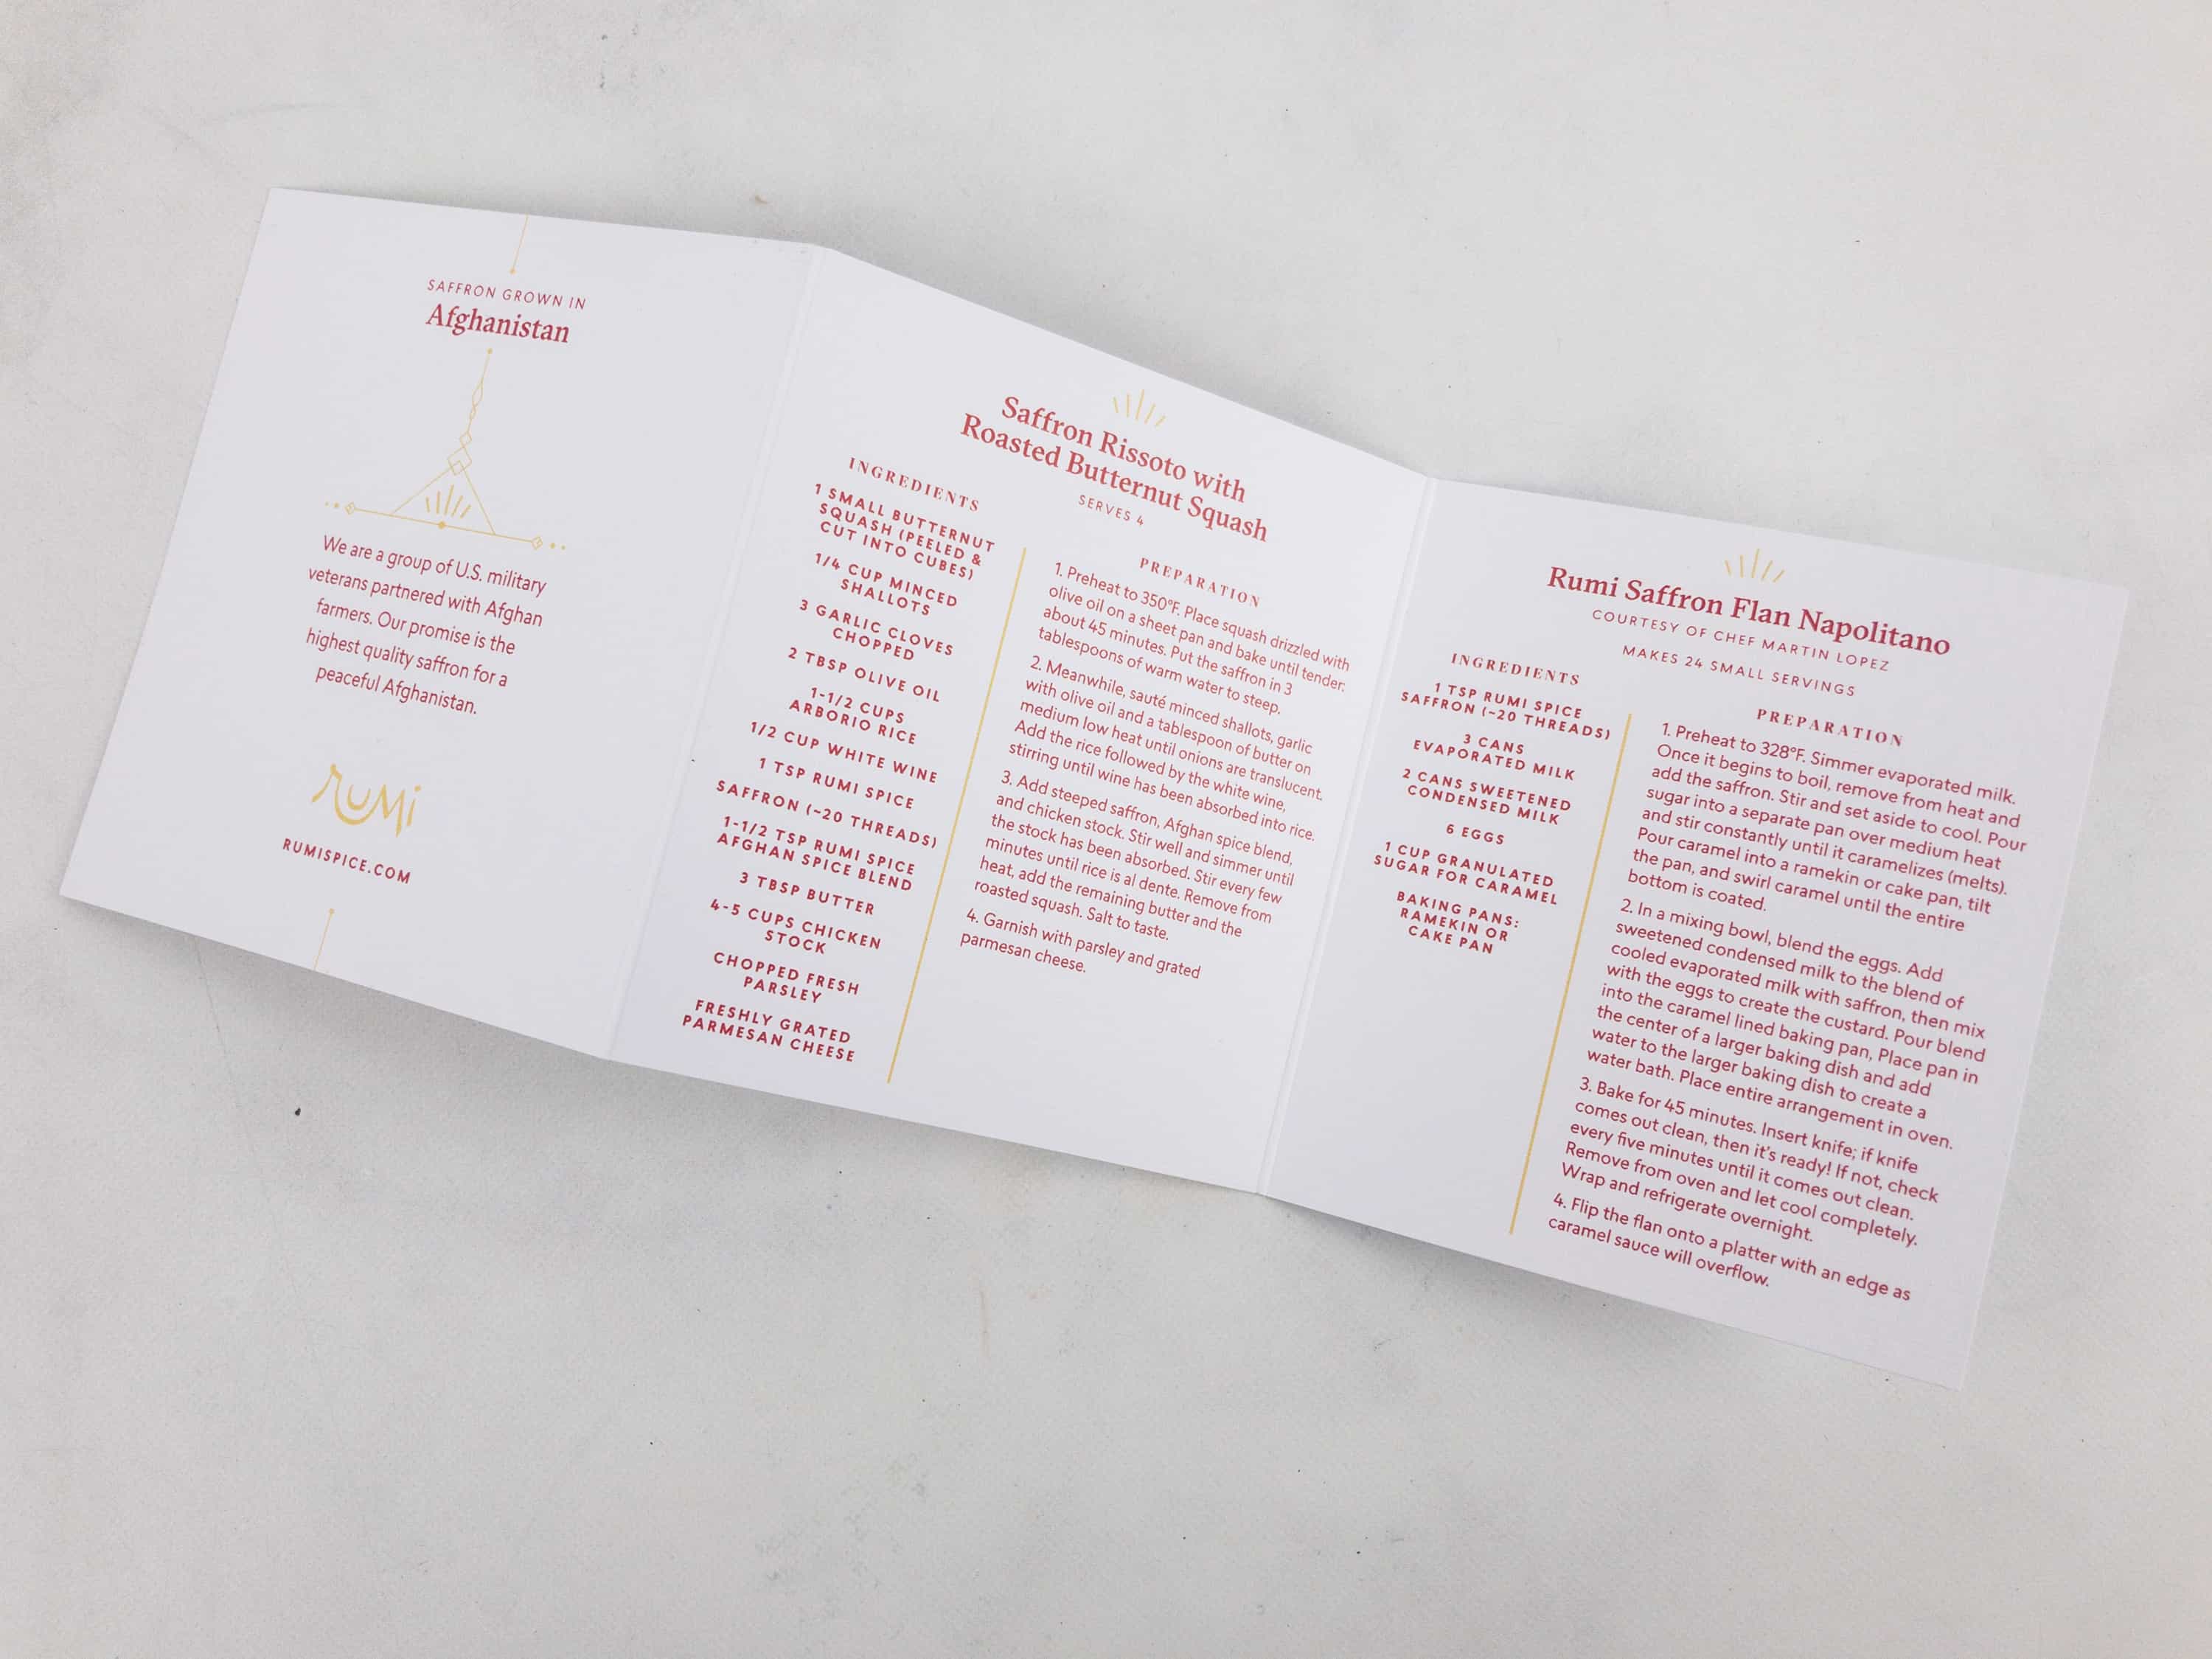 SAFFRON GROWN IN
Afghanistan
We are a group of U.S. military
veterans partnered with Afghan
farmers. Our promise is the
highest quality saffron for a
peaceful Afghanistan.
rumi
RUMISPICE.COM
Saffron Rissoto with
Roasted Butternut Squash
SERVES 4
INGREDIENTS
1 SMALL BUTTERNUT
SQUASH (PEELED &
CUT INTO CUBES)
1/4 CUP MINCED
SHALLOTS
3 GARLIC CLOVES
CHOPPED
2 TBSP OLIVE OIL
1-1/2 CUPS
ARBORIO RICE
1/2 CUP WHITE WINE
1 TSP RUMI SPICE
SAFFRON (~20 THREADS)
1-1/2 TSP RUMI SPICE
AFGHAN SPICE BLEND
3 TBSP BUTTER
4-5 CUPS CHICKEN
STOCK
CHOPPED FRESH
PARSLEY
FRESHLY GRATED
PARMESAN CHEESE
PREPARATION
1. Preheat to 350°F. Place squash drizzled with
olive oil on a sheet pan and bake until tender:
about 45 minutes. Put the saffron in 3
tablespoons of warm water to steep.
2. Meanwhile, sauté minced shallots, garlic
with olive oil and a tablespoon of butter on
medium low heat until onions are translucent.
Add the rice followed by the white wine,
stirring until wine has been absorbed into rice.
3. Add steeped saffron, Afghan spice blend,
and chicken stock. Stir well and simmer until
the stock has been absorbed. Stir every few
minutes until rice is al dente. Remove from
heat, add the remaining butter and the
roasted squash. Salt to taste.
4. Garnish with parsley and grated
parmesan cheese.
Rumi Saffron Flan Napolitano
COURTESY OF CHEF MARTIN LOPEZ
MAKES 24 SMALL SERVINGS
INGREDIENTS
1 TSP RUMI SPICE
SAFFRON (~20 THREADS)
3 CANS
EVAPORATED MILK
2 CANS SWEETENED
CONDENSED MILK
6 EGGS
1 CUP GRANULATED
SUGAR FOR CARAMEL
BAKING PANS:
RAMEKIN OR
CAKE PAN
PREPARATION
1. Preheat to 328°F. Simmer evaporated milk.
Once it begins to boil, remove from heat and
add the saffron. Stir and set aside to cool. Pour
sugar into a separate pan over medium heat
and stir constantly until it caramelizes (melts).
Pour caramel into a ramekin or cake pan, tilt
the pan, and swirl caramel until the entire
bottom is coated.
2. In a mixing bowl, blend the eggs. Add
sweetened condensed milk to the blend of
cooled evaporated milk with saffron, then mix
with the eggs to create the custard. Pour blend
into the caramel lined baking pan, Place pan in
the center of a larger baking dish and add
water to the larger baking dish to create a
water bath. Place entire arrangement in oven.
3. Bake for 45 minutes. Insert knife; if knife
comes out clean, then it's ready! If not, check
every five minutes until it comes out clean.
Remove from oven and let cool completely.
Wrap and refrigerate overnight.
4. Flip the flan onto a platter with an edge as
caramel sauce will overflow.